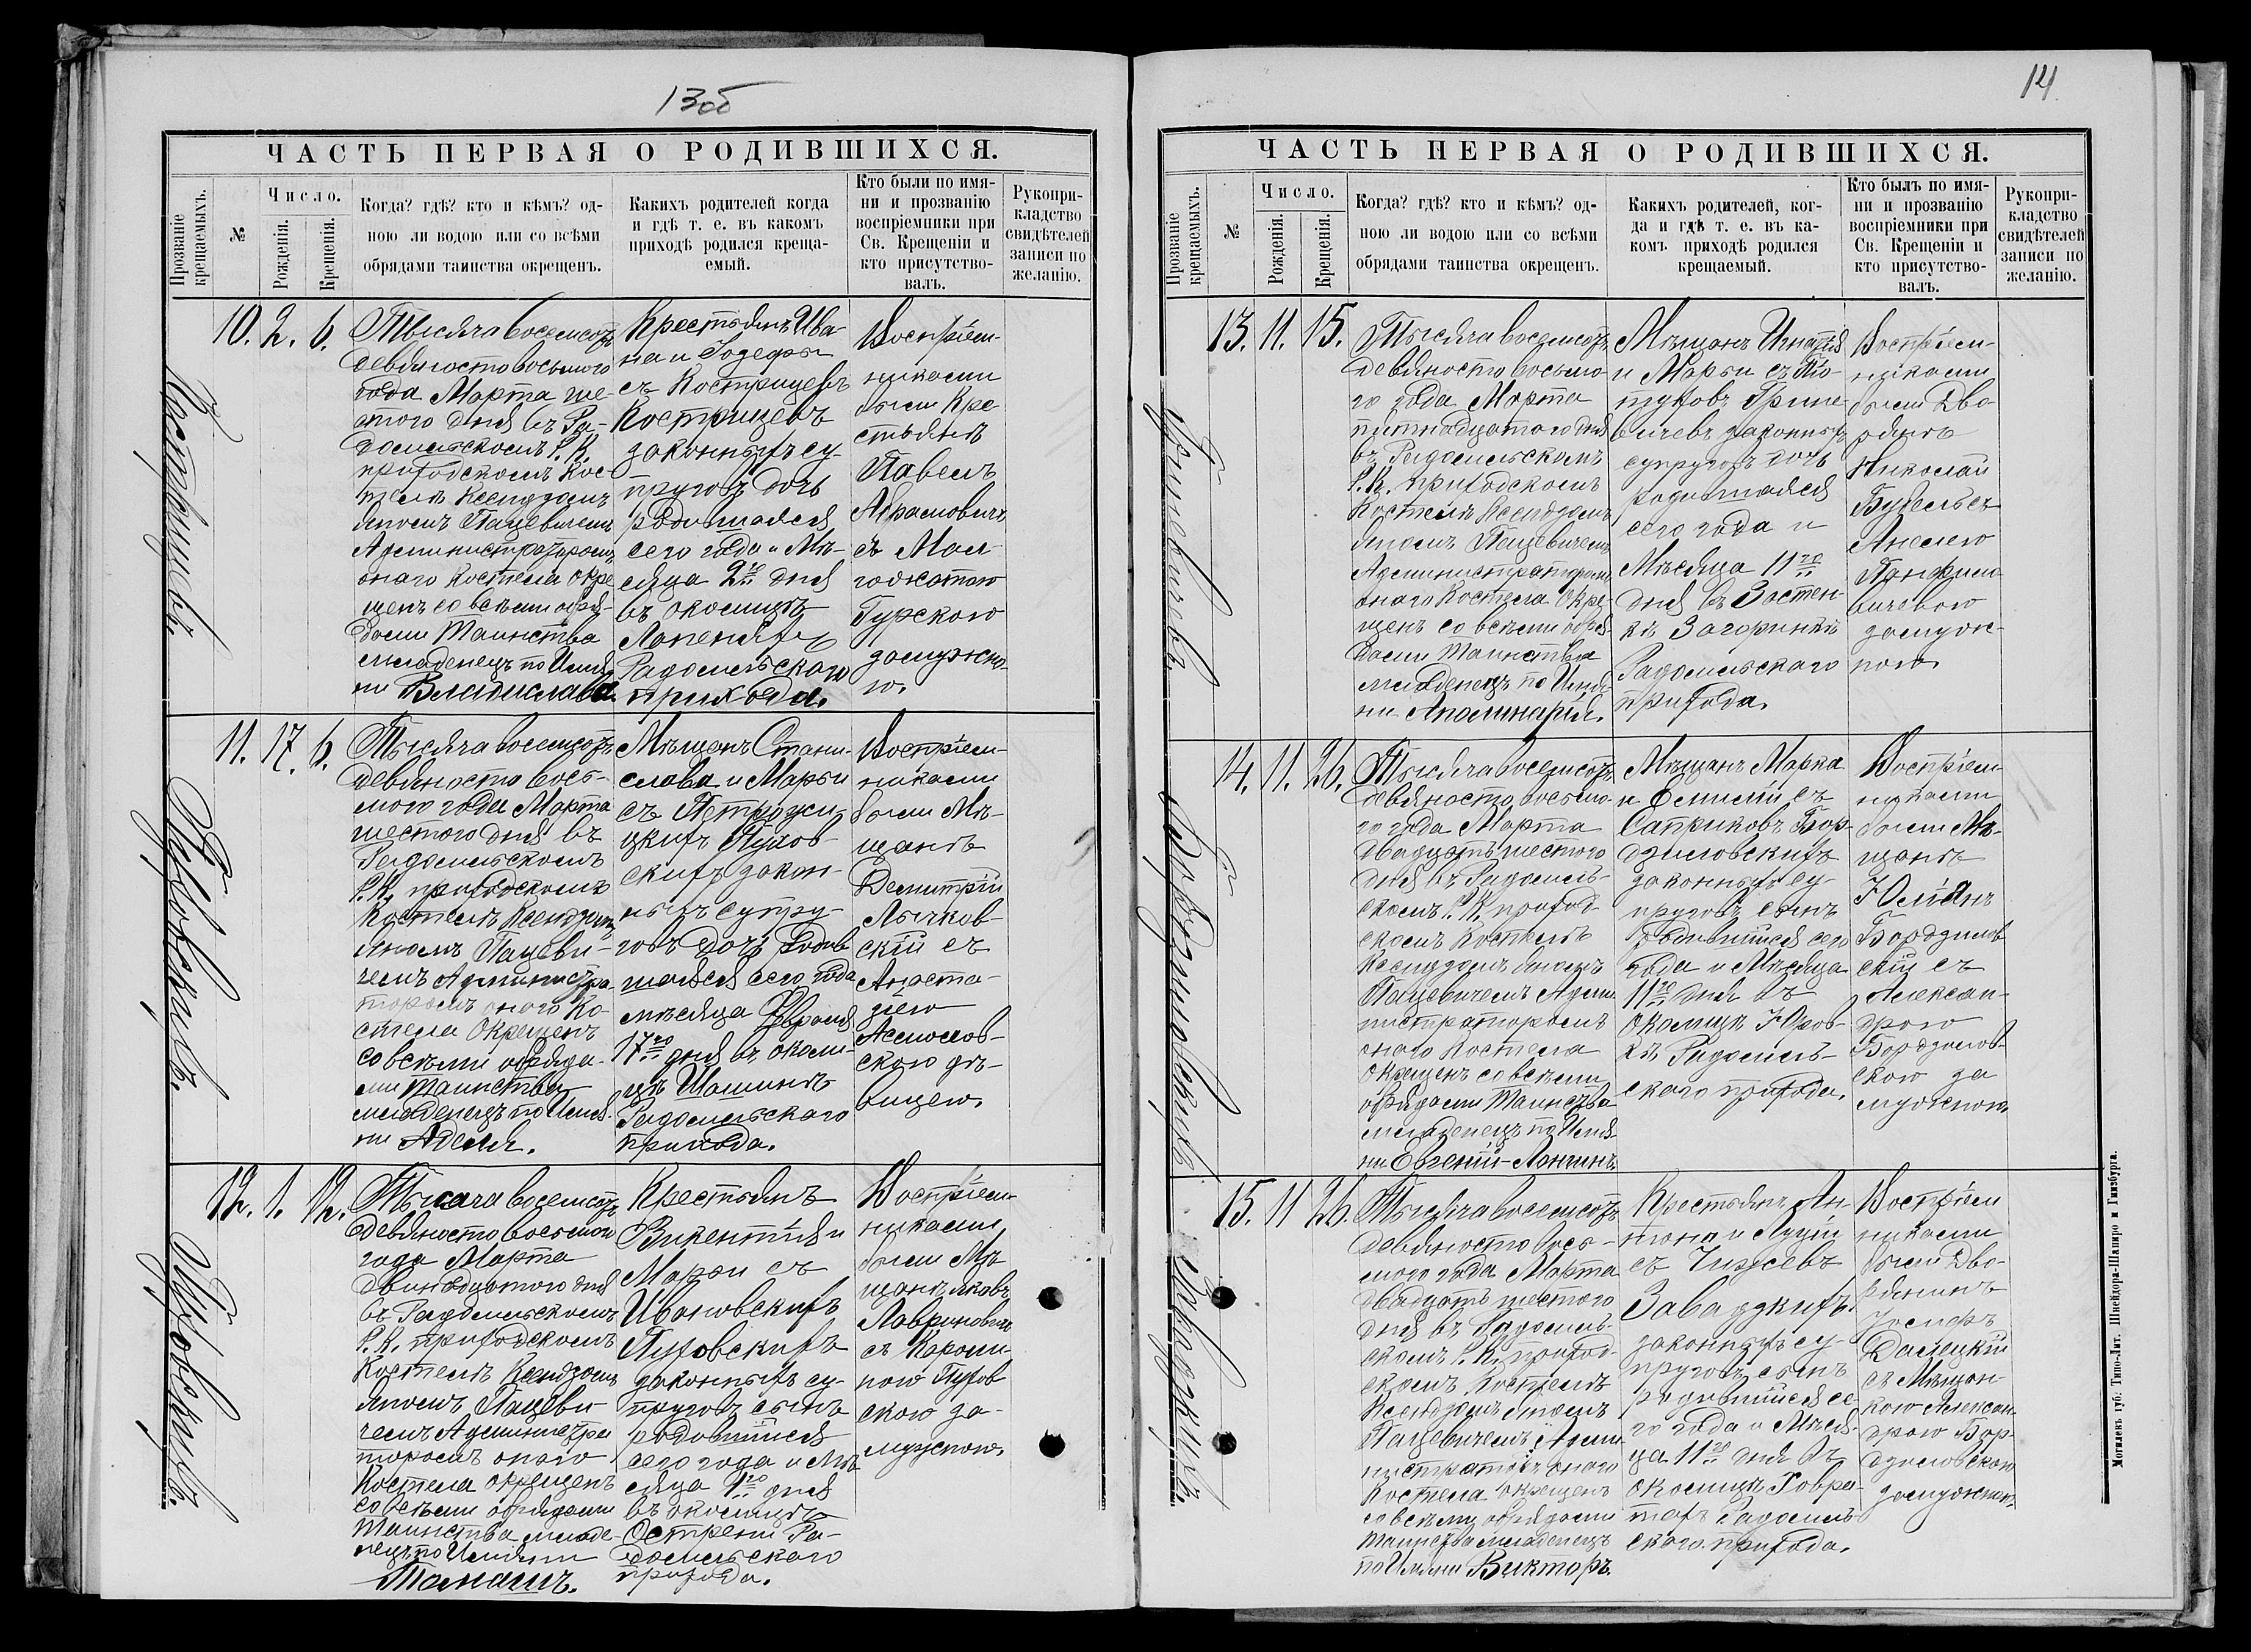 13об
ЧАСТЬ ПЕРВАЯ О РОДИВШИХСЯ.
Прозваніе крещаемыхъ.
№
Число.
Рожденія.
Крещенія.
Когда? гдѣ? кто и кѣмъ? од-
ною ли водою или со всѣми
обрядами таинства окрещенъ.
Какихъ родителей когда
и гдѣ т. е. въ какомъ
приходѣ родился креща-
емый.
Кто были по имя-
ни и прозванію
воспріемники при
Св. Крещеніи и
кто присутство-
валъ.
Рукопри-
кладство
свидѣтелей
записи по
желанію.
Кострицевъ.
10. 2. 6.
Тысяча восемьсотъ
девяносто восьмого
года Марта ше-
стого дня въ Ра-
домльскомъ Р. К.
приходскомъ Кос-
телѣ Ксендзомъ
Яномъ Пацевичемъ
Администраторомъ
онаго Костела окре
щенъ со всѣми обря-
дами Таинства
младенецъ по Имя-
ни Владислава
Крестьянъ Ива-
на и Іозефы
съ Кострицевъ
Кострицевъ
законныхъ су-
пруговъ дочь
родившаяся
сего года и Мѣ-
сяца 2го дня
въ околицѣ
Радомльскаго
прихода.
Воспріем-
никами
были Кре
стьянъ
Павелъ
Абрамовичъ
съ Мал
гожатою
Гурскою
замужне-
ю.
Пуховскихъ.
11. 17. 6.
Тысяча восемьсотъ
девяносто вось-
мого года Марта
шестого дня въ
Радомльскомъ
Р. К. приходскомъ
Костелѣ Ксендзомъ
Яномъ Пацеви-
чемъ Администра-
торомъ онаго Ко-
стела Окрещенъ
со всѣми обряда-
ми Таинства
младенецъ по Имя-
ни Аделя.
Мѣщанъ Стани-
слава и Марьи
съ Петрожи-
цкихъ Пухов-
скихъ закон-
ныхъ супру-
говъ дочь родив
шаяся сего года
мѣсяца Февраля
17го дня въ околи-
цѣ Шашинѣ
Радомльскаго
прихода.
Воспріем-
никами
были Мѣ-
щанъ
Демитрій
Лычков-
скій съ
Анаста-
зіею
скою дѣ-
вицею.
Пуховскихъ.
12. 1. 12.
Тысяча восемьсотъ
девяносто восьмого
года Марта
двѣнадцатого дня
въ Радомльскомъ
Р. К. приходскомъ
Костелѣ Ксендзомъ
Яномъ Пацеви-
чемъ Администра
торомъ онаго
Костела окрещенъ
со всѣми обрядами
Таинства младе-
нецъ по Имяни
Томашъ.
Крестьянъ
Викентія и
Марьи съ
Ивановскихъ
Пуховскихъ
законныхъ су-
пруговъ сынъ
родившійся
сего года и Мѣ
сяца 1го дня
въ околицѣ
Острени Ра-
домльскаго
прихода.
Воспріем-
никами
были Мѣ
щанъ Яковъ
Лавриновичъ
съ Кароли
ною Пухов
скою за-
мужною.
14
ЧАСТЬ ПЕРВАЯ О РОДИВШИХСЯ.
Прозваніе крещаемыхъ.
№
Число.
Рожденія.
Крещенія.
Когда? гдѣ? кто и кѣмъ? од-
ною ли водою или со всѣми
обрядами таинства окрещенъ.
Какихъ родителей, ког-
да и гдѣ т. е. въ ка-
комъ приходѣ родился
крещаемый.
Кто былъ по имя-
ни и прозванію
воспріемники при
Св. Крещеніи и
кто присутство-
валъ.
Рукопри-
кладство
свидѣтелей
записи по
желанію.
Гриневичевъ.
13. 11. 15.
Тысяча восемьсотъ
девяносто восьмо-
го года Марта
пятнадцатого дня
въ Радомльскомъ
Р. К. приходскомъ
Костелѣ Ксендзомъ
Яномъ Пацевичемъ
Администраторомъ
онаго Костела Окре-
щенъ со всѣми обря-
дами Таинства
младенецъ по Имя-
ни Аполинарія.
Мѣщанъ Игнатія
и Марьи съ По-
туховъ Грине-
вичевъ законныхъ
супруговъ дочь
родившаяся
сего года и
Мѣсяца 11го
дня въ Застен-
кѣ Загоринкѣ
Радомльскаго
прихода.
Воспріем-
никами
были Дво-
рянъ
Николай
съ
Анелею
Панфило
вичевою
замуж-
ною
Бордзиловскихъ
14. 11. 26.
Тысяча восемьсотъ
девяносто восьмо-
го года Марта
двадцать шестого
дня въ Радомль-
скомъ Р. К. приход-
скомъ Костелѣ
Ксендзомъ Яномъ
Пацевичемъ Адми
нистраторомъ
онаго Костела
Окрещенъ со всѣми
обрядами Таинства
младенецъ по Имя-
ни Евгеній-Лонгинъ.
Мѣщанъ Марка
и Емиліи съ
Саприковъ Бор-
дзиловскихъ
законныхъ су-
пруговъ сынъ
родившійся сего
года и Мѣсяца
11го дня въ
околицѣ Юзов-
кѣ Радомль-
скаго прихода.
Воспріем
никами
были Мѣ-
щанъ
Юліянъ
Бордзилов
скій съ
Алексан-
дрою
Бордзилов-
скою за
мужною.
Завадзкихъ.
15. 11 26.
Тысяча восемьсотъ
девяносто вось-
мого года Марта
двадцать шестого
дня въ Радомль-
скомъ Р. К. приход-
скомъ Костелѣ
Ксендзомъ Яномъ
Пацевичемъ Адми
нистраторъ онаго
Костела окрещенъ
со всѣми обрядами
таинства младенецъ
по Имяни Викторъ.
Крестьянъ Ан-
тона и Луціи
съ Чижевъ
Завадзкихъ
законныхъ су-
пруговъ сынъ
родившійся се-
го года и Мѣся-
ца 11го дня въ
околицѣ Ховра-
тахъ Радомль-
скаго прихода.
Воспріем
никами
были Дво-
рянинъ
Іосифъ
Далецкій
съ Мѣщан-
кою Алексан-
дрою Бор-
дзиловскою
замужною.
Могилевъ губ. Типо-Лит. Шнейдора-Шапиро и Гинзбурга.